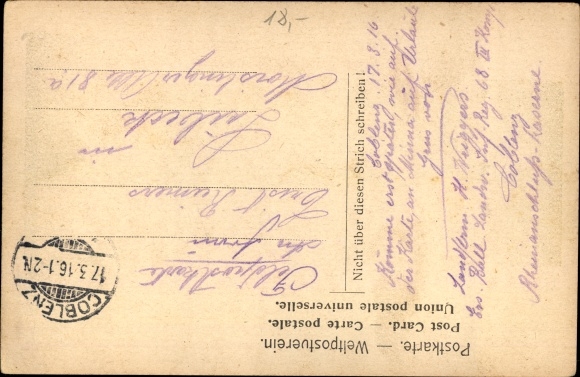 18,-
Postkarte. — Weltpostverein.
Post Card. — Carte postale.
Union postale universelle.
Nicht über diesen Strich schreiben!
Feldpostkarte
An Frau
Ernst
in
Lübeck
Allee 81a
COBLENZ
17.3.16.1-2N.
Coblenz, 17.3.16
Komme erst später, wie auf
der Karte an Minna, auf Urlaub
Gruss von
Landstm H.
Ers Batl. Landw. Inf. Reg. 68 III Komp
Coblenz
Rheinanschluss-Kaserne.